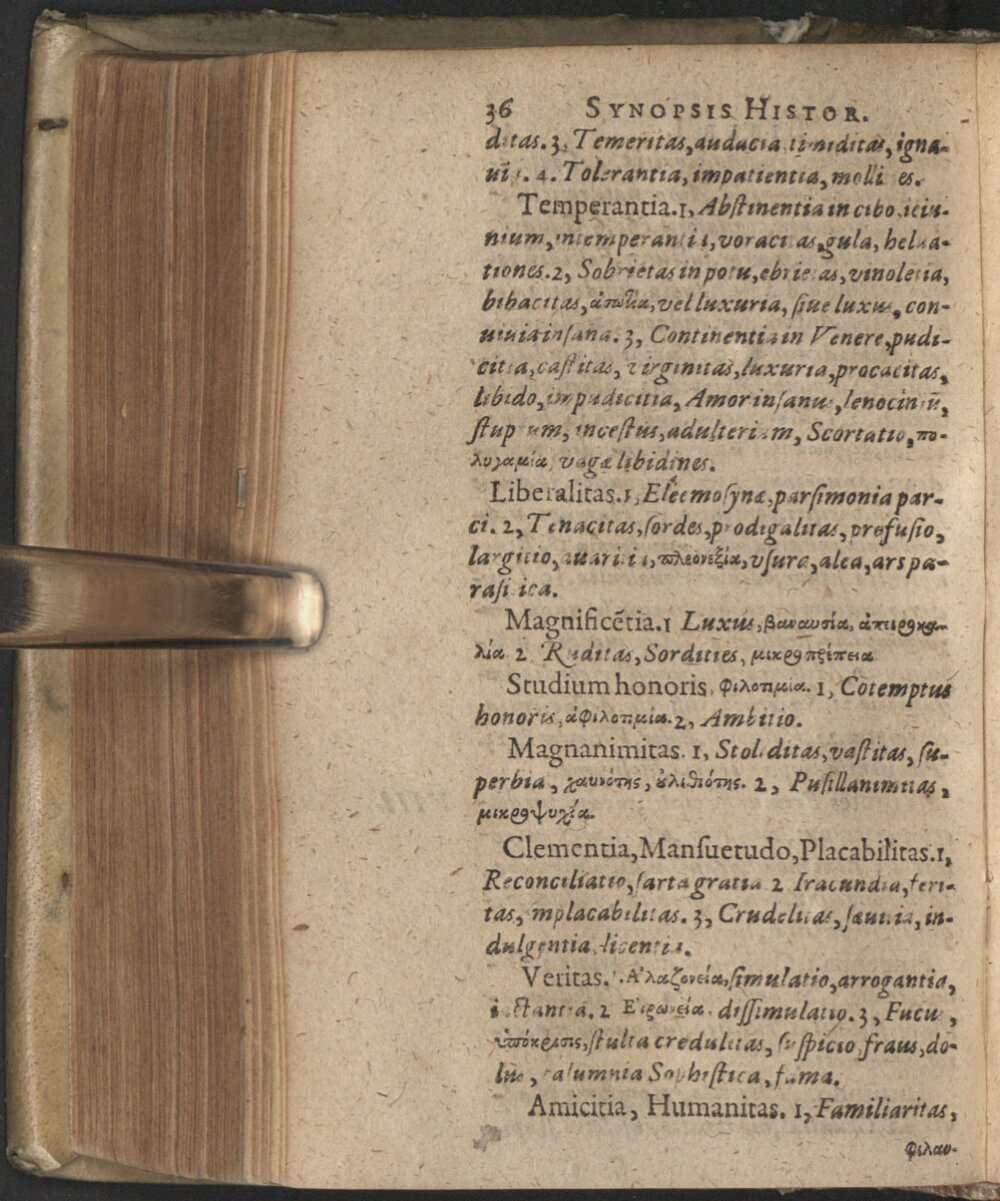 36 SYNOPSIS HISTOR.
ditas. 3, Temeritas, audacia timiditas, igna-
. 4. Tolerantia, impatientia, molli es.
Temperantia. 1, Abſtinentia in cibo, ieiu-
nium, intemperantia, voracitas, gula, helua-
tiones. 2, Sobrietas in potu, ebrietas, vinoletia,
bibacitas, vel luxuria, ſiue luxus, con-
uiuia inſana. 3, Continentia in Venere, pudi-
citia, caſtitas, virginitas, luxuria, procacitas,
libido, impudicitia, Amor inſanus, lenociniū,
ſtuprum, inceſtus, adulterium, Scortatio, πο-
λυγαμία, vagæ libidines.
Liberalitas. 1, Eleemoſynæ, parſimonia par-
ci. 2, Tenacitas, ſordes, prodigalitas, profuſio,
largitio, auaritia, πλεονεξία, vſura, alea, ars pa-
raſitica.
Magnificētia. 1 Luxus, βαναυσία, ἀπειροκα-
λία 2 Ruditas, Sordities, μικροπρέπεια
Studium honoris, φιλοτιμία. 1, Cōtemptus
honoris, ἀφιλοτιμία. 2, Ambitio.
Magnanimitas. 1, Stoliditas, vaſtitas, ſu-
perbia, χαυνότης, ἠλιθιότης. 2, Puſillanimitas,
μικροψυχία.
Clementia, Manſuetudo, Placabilitas. 1,
Reconciliatio, ſarta gratia 2 Iracundia, feri-
tas, implacabilitas. 3, Crudelitas, ſæuitia, in-
dulgentia, licentia.
Veritas. Ἀλαζονεία, ſimulatio, arrogantia,
iactantia. 2 Εἰρωνεία. diſſimulatio. 3, Fucus,
ὑπόκρισις, ſtulta credulitas, ſuſpicio, fraus, do-
lus, calumnia Sophiſtica, fama.
Amicitia, Humanitas. 1, Familiaritas,
φιλαυ-